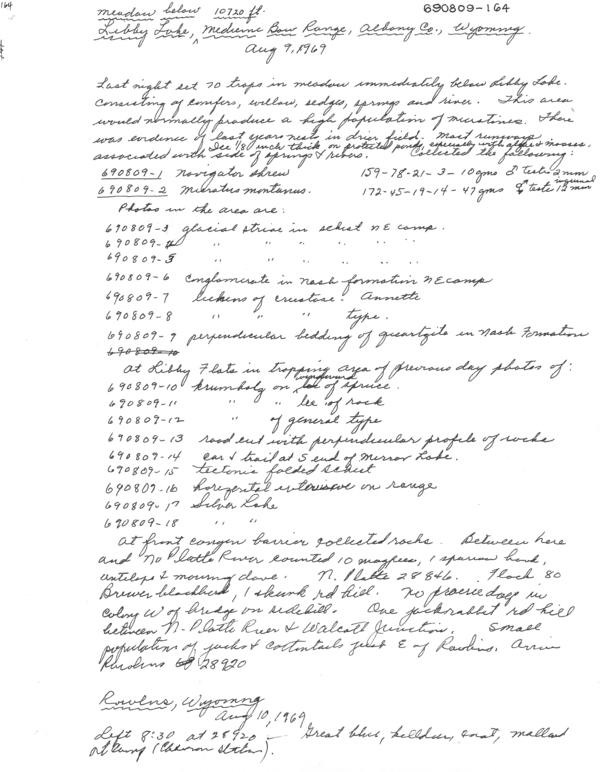 164
meadow below 10720 ft.
690809-164
Libby Lake, Medicine Bow Range, Albany Co., Wyoming
Aug 9, 1969
Last night set 70 traps in meadow immediately below Libby Lake.
Consisting of conifers, willow, sedges, springs and river. This area
would normally produce a high population of microtines. There
was evidence of last years nests in drier field. Most runways
associated with side of springs & rivers. Collected the following:
Ice 1/8 inch thick on protected ponds, especially with algae & mosses.
690809-1 navigator shrew 159-78-21-3-10gms ♂ testes 2mm
690809-2 Microtus montanus. 172-45-19-14-47gms ♂ teste inguinal 12mm
Photos in the area are:
690809-3 glacial striae in schist NE camp.
690809-4 " " " " " "
690809-5 " " " " " "
690809-6 conglomerate in Nash formation NE camp
690809-7 lichens of crustose: Annette
690809-8 " " " type.
690809-9 perpendicular bedding of quartzite in Nash Formation
690809-10
At Libby Flats in trapping area of previous day photos of:
690809-10 krumholz on windward of spruce.
690809-11 " " lee of rock
690809-12 " of general type
690809-13 road cut with perpendicular profile of rocks
690809-14 car & trail at S end of Mirror Lake.
690809-15 tectonic folded schist
690809-16 horizontal intrusive on range
690809-17 Silver Lake
690809-18 " "
At front canyon barrier collected rocks. Between here
and No Platte River counted 10 magpies, 1 sparrow hawk,
antelope & mourning dove. N. Platte 28846. Flock 80
Brewer blackbird, 1 skunk rd kill. No prairie dogs in
colony W of bridge on sidehill. One jackrabbit rd kill
between N. Platte River & Walcott Junction. Small
population of jacks & cottontails just E of Rawlins. Arrive
Rawlins 28920
Rawlins, Wyomng
Aug 10, 1969
Left 8:30 at 28920 - Great blue, killdeer, coot, mallard
at Camp (Chevron Station).